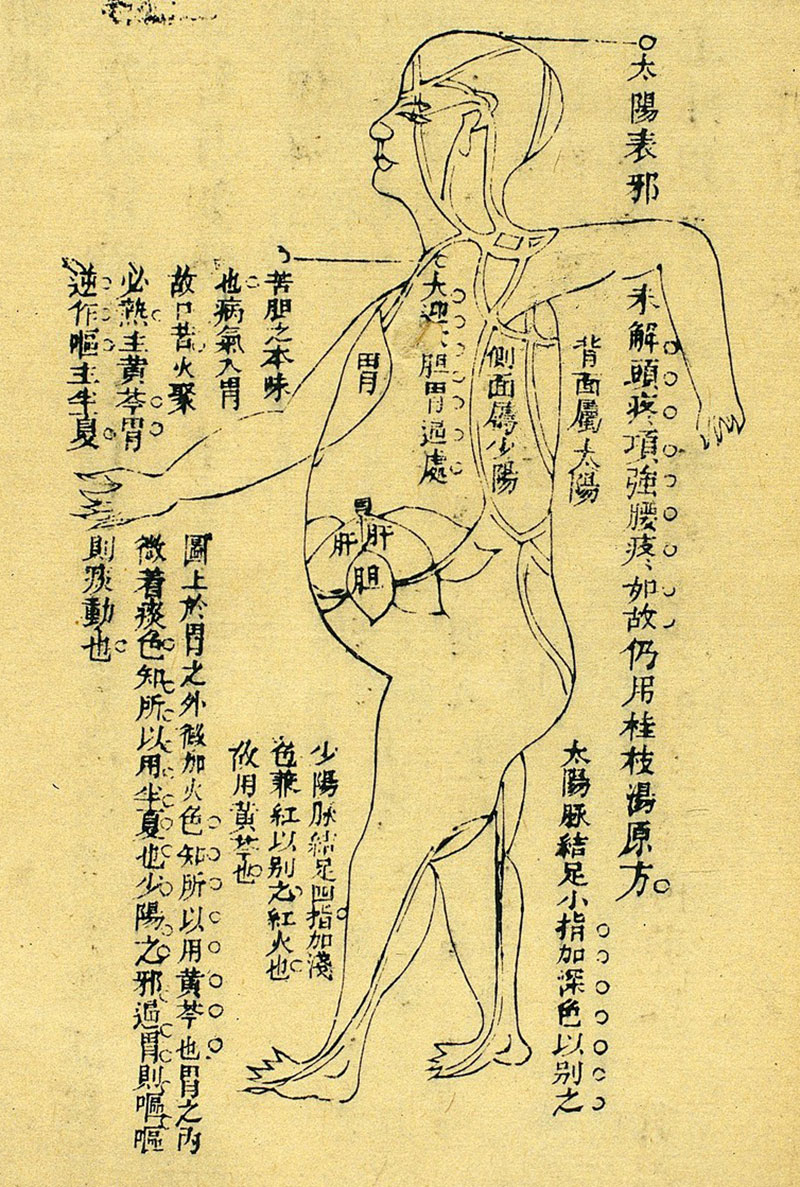 太陽表邪
未解頭疼項強腰疼如故仍用桂枝湯原方
背面屬太陽
側面屬少陽
大迎穴胆胃過處
胃
肝
肝
胆
苦胆之本味
也病氣入胃
故口苦火聚
必熱主黄芩胃
逆作嘔主半夏
太陽脉結足小指加深色以別之
少陽脉結足四指加淺
色兼紅以別之紅火也
故用黄芩也
圖上於胃之外微加火色知所以用黄芩也胃之内
微着痰色知所以用半夏也少陽之邪過胃則嘔嘔
則痰動也